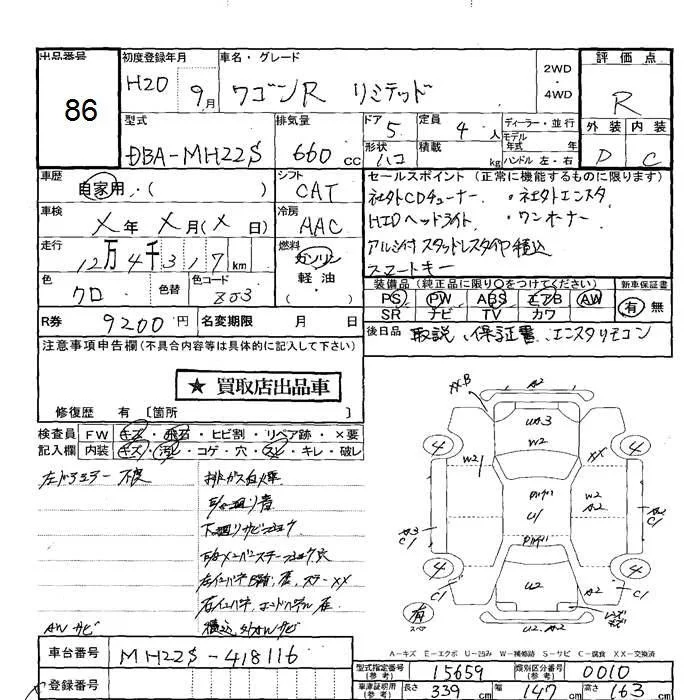 出品番号 86
初度登録年月 H20 9月
車名・グレード ワゴンR リミテッド
2WD・4WD
評価点 R
外装 D 内装 C
型式 DBA-MH22S
排気量 660 cc
ドア 5 定員 4人
形状 ハコ 積載 kg
ディーラー・並行
モデル年式 年
ハンドル 左・右
車歴 自家用・( )
シフト CAT
車検 X年 X月(X日)
冷房 AAC
走行 12万4千317 km
燃料 ガソリン 軽油 ( )
色 クロ 色替 色コード ZJ3
R券 9200円 名変期限 月 日
セールスポイント(正常に機能するものに限ります)
社外CDチューナー ・社外エンスタ
HIDヘッドライト ・ワンオーナー
アルミ付スタッドレスタイヤ積込
スマートキー
装備品(純正品に限り○をつけてください) 新車保証書
PS PW ABS エアB AW 有 無
SR ナビ TV カワ
後日品 取説、保証書、エンスタリモコン
注意事項申告欄(不具合内容等は具体的に記入して下さい)
★買取店出品車
修復歴 有〔箇所 〕
検査員記入欄 FW キズ・飛石・ヒビ割・リペア跡・×要
内装 キズ・汚レ・コゲ・穴・スレ・キレ・破レ
左ドアミラー 不良
排ガス白煙
下廻りサビ
AWサビ
積込 外AWサビ
XXB A2
UA3
W2
4 4
W21 XX
W2
A2
U1
A3
C1
A2
C1
4 4
C1 U2 A2 C1
有
スペア
U2. A2
A-キズ E-エクボ U-凹み W-補修跡 S-サビ C-腐食 XX-交換済
車台番号 MH22S-418116
登録番号
型式指定番号(参考) 15659 類別区分番号(参考) 0010
車庫証明用(参考) 長さ 339 cm 幅 147 cm 高さ 163 cm